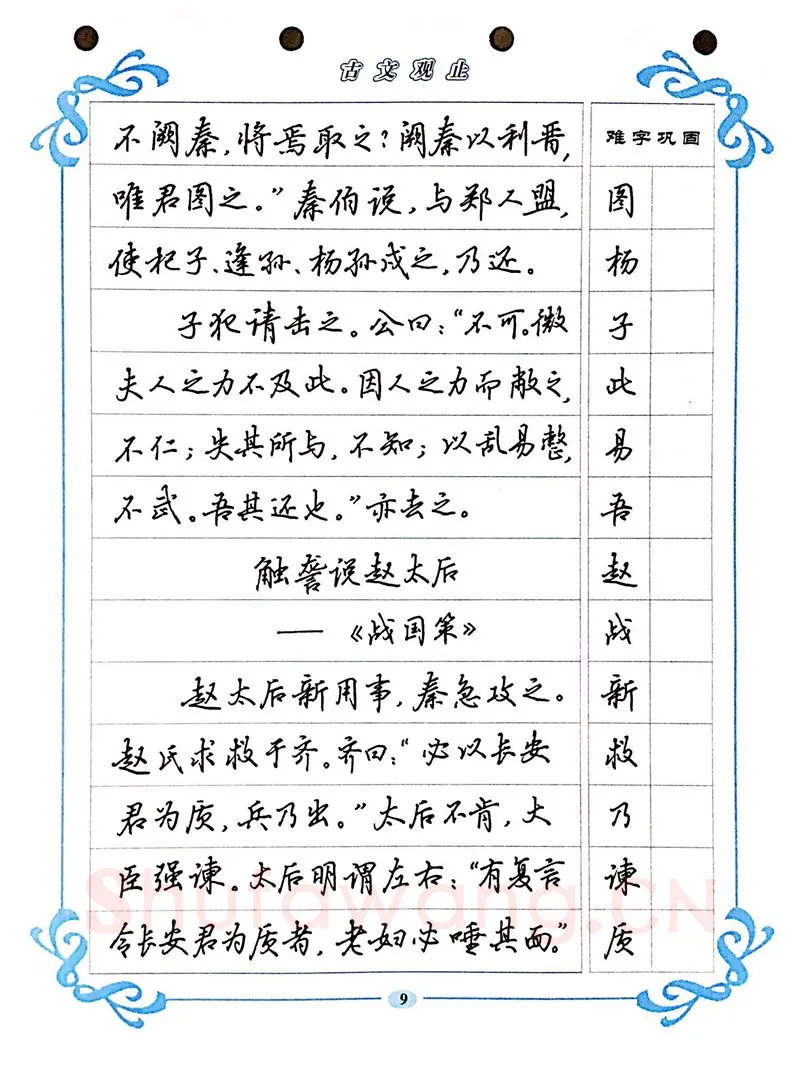 古文观止
不阙秦，将焉取之？阙秦以利晋，
唯君图之。”秦伯说，与郑人盟，
使杞子、逢孙、杨孙戍之，乃还。
子犯请击之。公曰：“不可。微
夫人之力不及此。因人之力而敝之，
不仁；失其所与，不知；以乱易整，
不武。吾其还也。”亦去之。
触詟说赵太后
——《战国策》
赵太后新用事，秦急攻之。
赵氏求救于齐。齐曰：“必以长安
君为质，兵乃出。”太后不肯，大
臣强谏。太后明谓左右：“有复言
令长安君为质者，老妇必唾其面。”
难字巩固
图
杨
子
此
易
吾
赵
战
新
救
乃
谏
质
Shufawang.CN
9